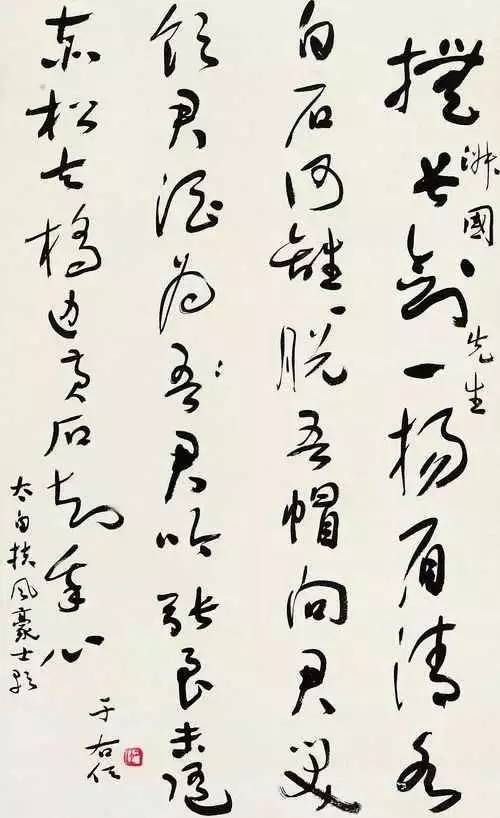 國先生
撫長劍一揚眉清水
白石何離〻脫吾帽向君笑
飲君酒為吾君吟張良未逐
赤松去橋邊黃石知我心
太白扶風豪士歌
于右任